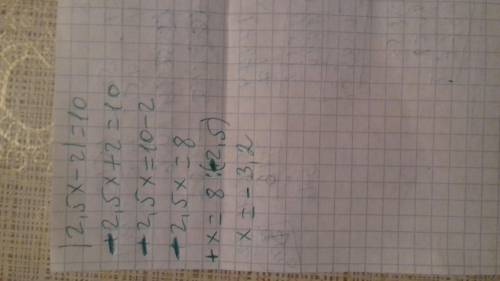 |2,5x-2|=10
-2,5x+2=10
-2,5x=10-2
-2,5x=8
+x=8:(-2,5)
x=-3,2